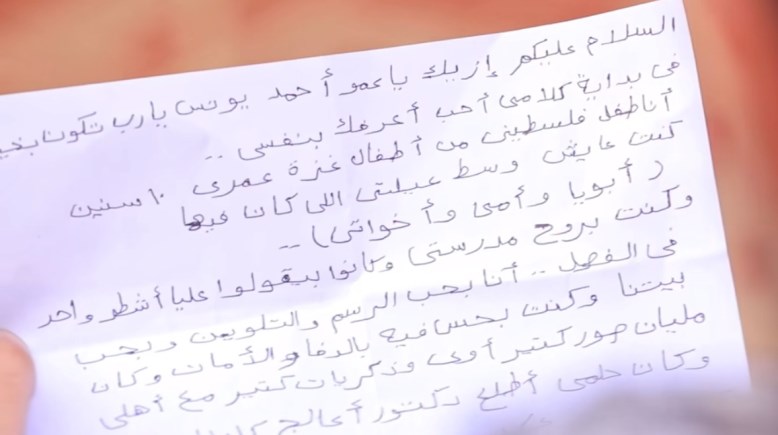 السلام عليكم إزيك يا عمو أحمد يونس يارب تكون بخير
فى بداية كلامى أحب أعرفك بنفسى ..
أنا طفل فلسطينى من أطفال غزة عمرى ١٠ سنين
كنت عايش وسط عيلتى اللى كان فيها
( أبويا وأمى وأخواتى ) ..
وكنت بروح مدرستى وكانوا بيقولوا عليا أشطر واحد
فى الفصل .. أنا بحب الرسم والتلوين وبحب
بيتنا وكنت بحس فيه بالدفا والأمان وكان
مليان صور كتير أوى وذكريات كتير مع أهلى
وكان حلمى أطلع دكتور أعالج